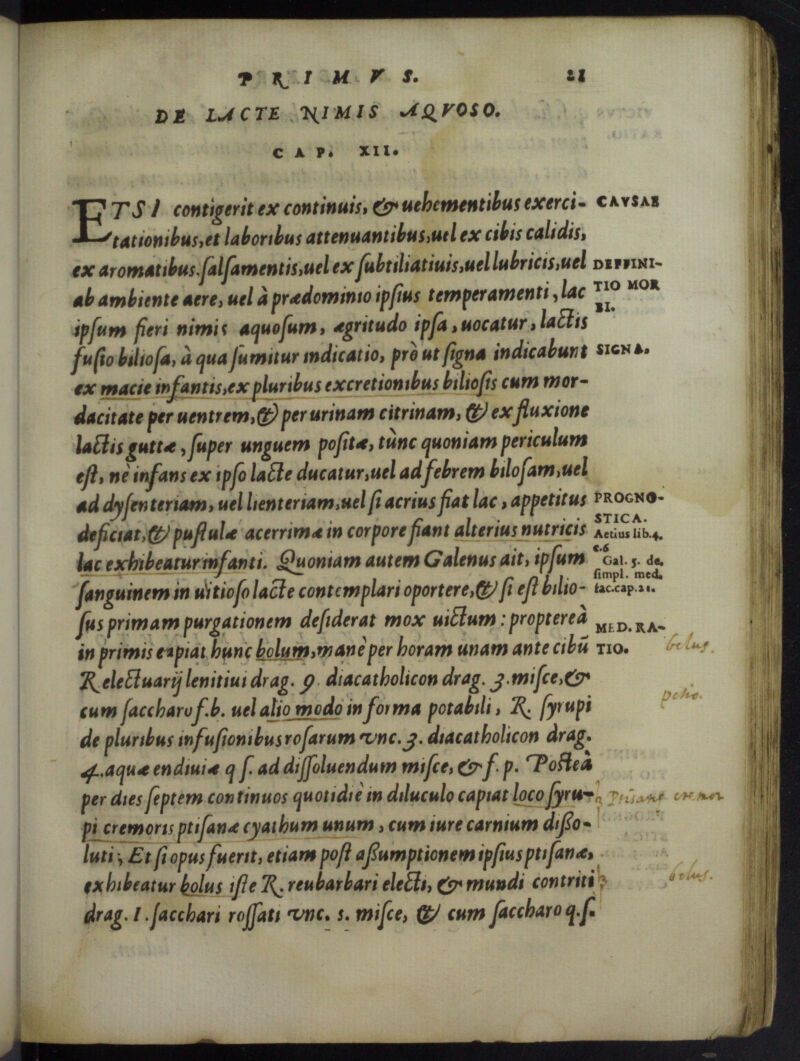 PRIMVS. 21
DE LACTE NIMIS AQVOSO.
CAP. XII.
ETSI contigerit ex continuis, & uehementibus exerci- CAVSAE
tationibus,et laboribus attenuantibus,uel ex cibis calidis,
ex aromatibus,salsamentis,uel ex subtiliatiuis,uel lubricis,uel DEFFINI-
ab ambiente aere, uel à prædominio ipsius temperamenti, lac TIO MOR
BI.
ipsum fieri nimis aquosum, ægritudo ipsa, uocatur, lactis
fusio biliosa, à qua sumitur indicatio, prò ut signa indicabunt SIGNA.
ex macie infantis,ex pluribus excretionibus biliosis cum mor-
dacitate per uentrem,& per urinam citrinam, & ex fluxione
lactis guttæ, super unguem positæ, tùnc quoniam periculum
est, nè infans ex ipso lacte ducatur,uel ad febrem bilosam,uel
ad dysenteriam, uel lienteriam,uel si acrius fiat lac, appetitus PROGNO-
STICA.
deficiat,& pustulæ acerrimæ in corpore fiant alterius nutricis Aetius lib.4.
c.6
lac exhibeatur infanti. Quoniam autem Galenus ait, ipsum Gal. 5. de.
simpl. med.
sanguinem in uitioso lacte contemplari oportere,& si est bilio- fac.cap.21.
sus primam purgationem desiderat mox uictum: propterea MED.RA-
in primis capiat hunc bolum,manè per horam unam ante cibū TIO. bolus.
℞ electuarij lenitiui drag. 9. diacatholicon drag. 3.misce,&
cum saccharo f.b. uel alio modo in forma potabili, ℞. syrupi
de pluribus infusionibus rosarum vnc.3. diacatholicon drag.
4.aquæ endiuiæ q s. ad dissoluendum misce, & f. p. Posteà
per dies septem continuos quotidiè in diluculo capiat loco syru- cremor
pi cremoris ptisanæ cyathum unum, cum iure carnium disso-
luti; Et si opus fuerit, etiam post assumptionem ipsius ptisanæ,
exhibeatur bolus iste ℞. reubarbari electi, & mundi contriti bolus.
drag. 1.sacchari rossati vnc. s. misce, & cum saccharo q.s.